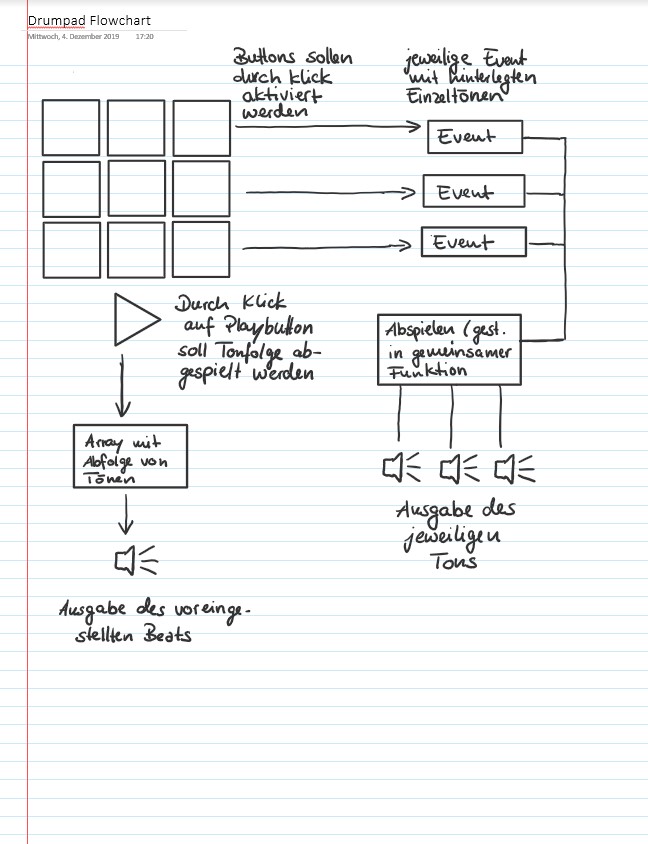 Drumpad Flowchart
Mittwoch, 4. Dezember 2019 17:20
Buttons sollen
durch Klick
aktiviert
werden
jeweilige Event
mit hinterlegten
Einzeltönen
Event
Event
Event
Durch Klick
auf Playbutton
soll Tonfolge ab-
gespielt werden
Abspielen (gest.
in gemeinsamer
Funktion
Array mit
Abfolge von
Tönen
Ausgabe des
jeweiligen
Tons
Ausgabe des voreinge-
stellten Beats